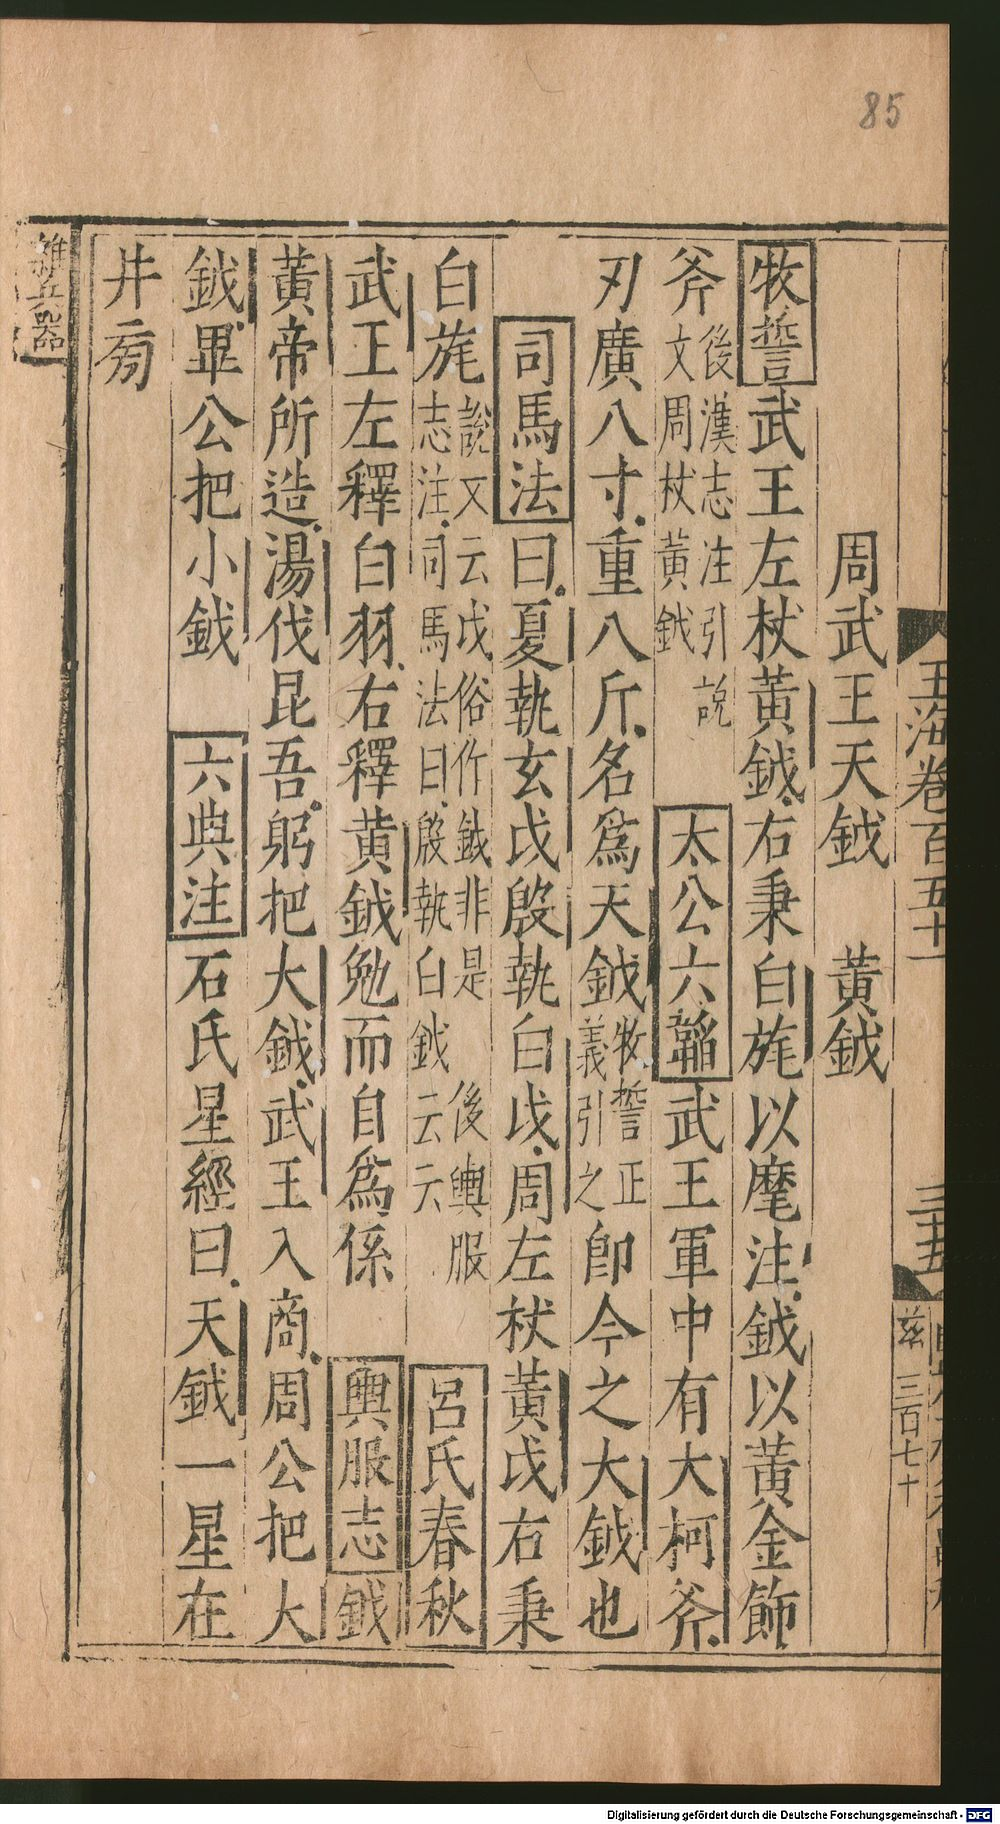 85
玉海卷百五十一
三十五
茲 三百七十
周武王天鉞 黃鉞
牧誓武王左杖黃鉞右秉白旄以麾注鉞以黃金飾
斧後漢志注引說文周杖黃鉞 太公六韜武王軍中有大柯斧
刃廣八寸重八斤名爲天鉞牧誓正義引之即今之大鉞也
司馬法曰夏執玄戉殷執白戉周左杖黃戉右秉
白旄說文云戉俗作鉞非是 後輿服志注司馬法曰殷執白鉞云云 呂氏春秋
武王左釋白羽右釋黃鉞勉而自爲係 輿服志鉞
黃帝所造湯伐昆吾躬把大鉞武王入商周公把大
鉞畢公把小鉞 六典注石氏星經曰天鉞一星在
井旁
雜兵器
Digitalisierung gefördert durch die Deutsche Forschungsgemeinschaft - DFG